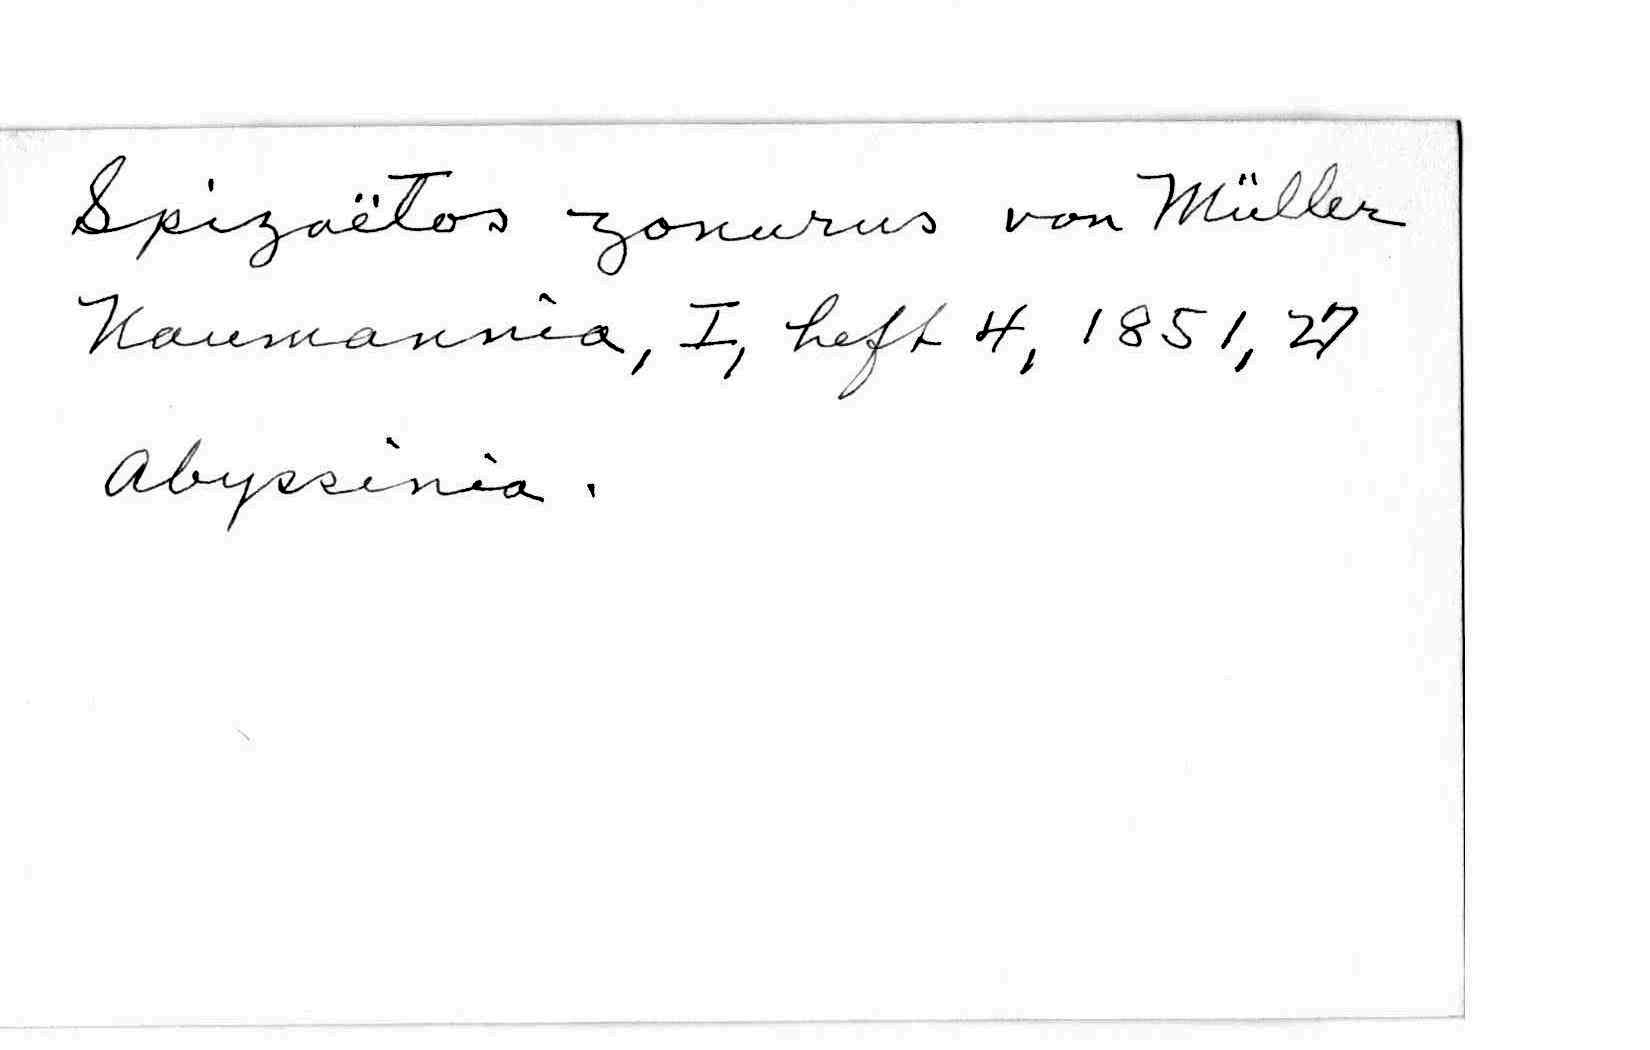 Spizaëtos zonurus von Müller
Naumannia, I, heft 4, 1851, 27
Abyssinia.